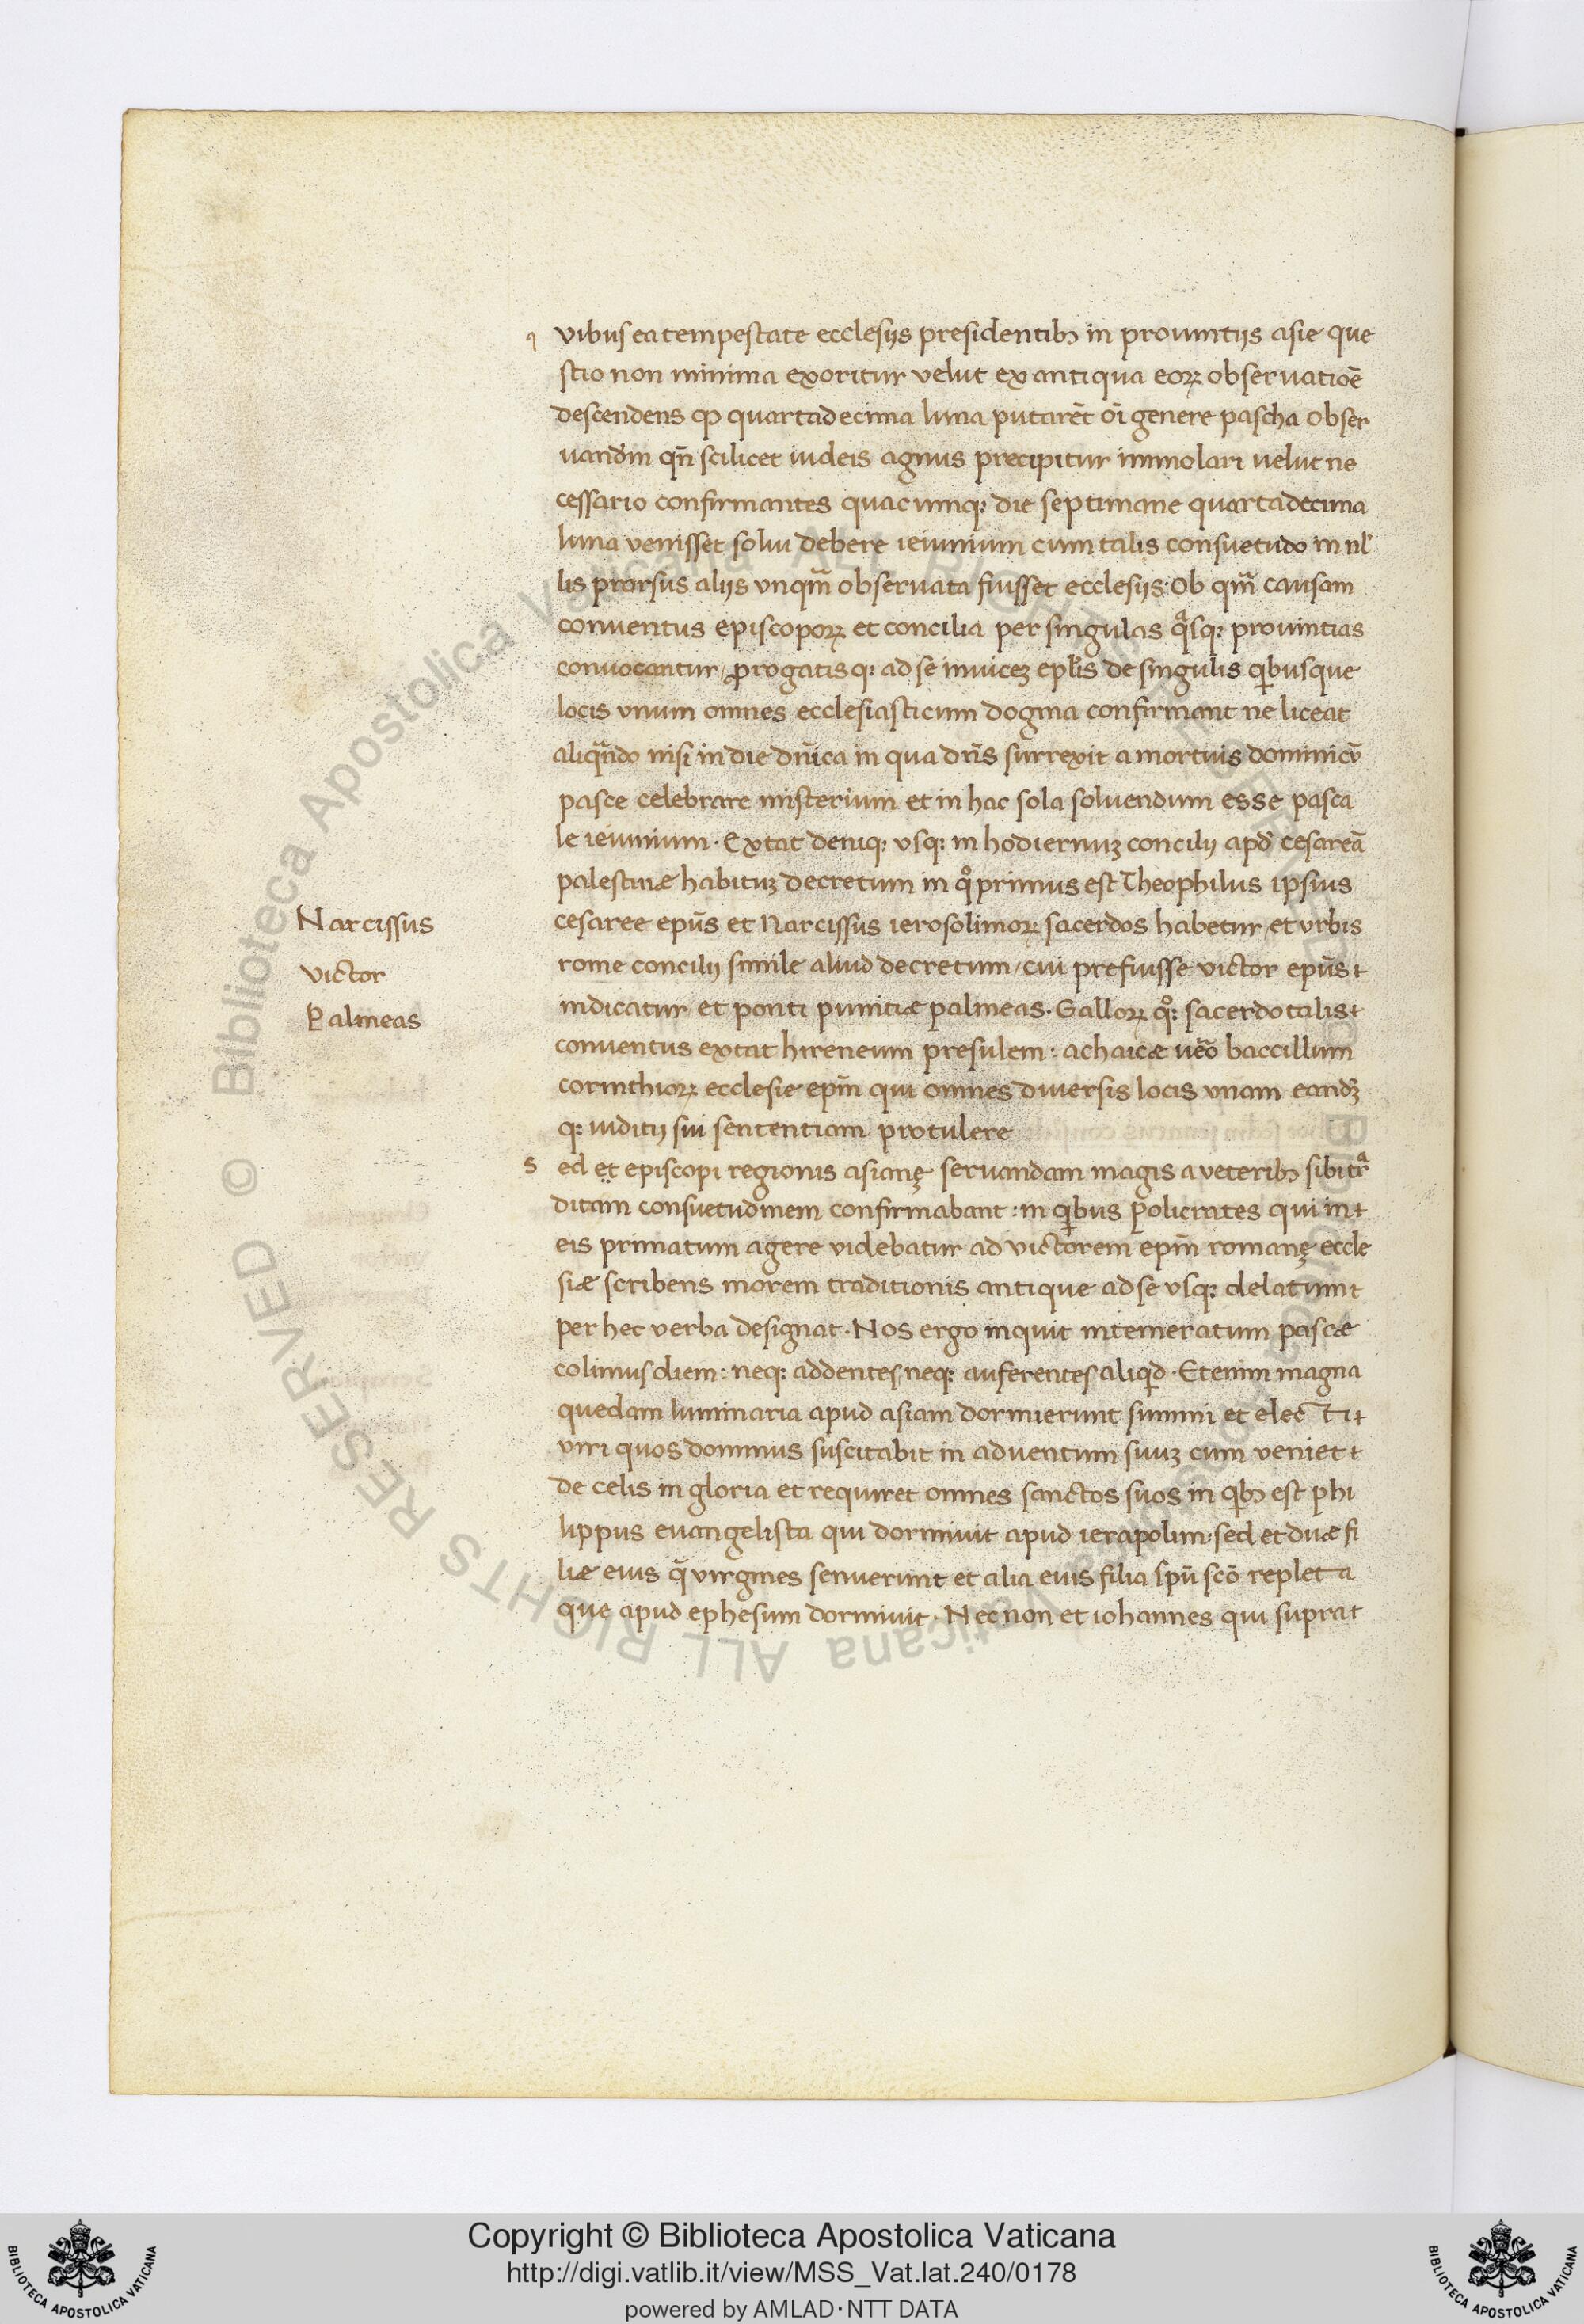 q vibus ea tempestate ecclesiis presidentibꝫ in prouintiis asie que
stio non minima exoritur velut ex antiqua eoꝝ obseruatiōe
descendens ꝙ quartadecima luna putarēt oī genere pascha obser
uandū qn̄ scilicet iudeis agnus precipitur immolari uelut ne
cessario confirmantes quacunqꝫ die septimane quartadecima
luna venisset solui debere ieiunium cum talis consuetudo in nl
lis prorsus aliis vnqm̄ obseruata fuisset ecclesiis. Ob qm̄ causam
conuentus episcopoꝝ et concilia per singulas qͣsqꝫ prouintias
conuocantur, ꝓrogatisqꝫ ad se inuiceꝫ epl̄is de singulis qͥbusque
locis vnum omnes ecclesiasticum dogma confirmant ne liceat
aliqͣndo nisi in die dn̄ica in qua dn̄s surrexit a mortuis dominicū
pasce celebrare misterium et in hac sola soluendum esse pasca
le ieiunium. Extat deniqꝫ vsqꝫ in hodiernuꝫ concilii apd̄ cesareā
palestinæ habituꝫ decretum in qͦ primus est Theophilus ipsius
cesaree ep̄us et Narcissus ierosolimoꝝ sacerdos habetur, et vrbis
rome concilii simile aliud decretum, cui prefuisse victor ep̄us
indicatur et ponti puintiæ palmeas. Galloꝝ qͦqꝫ sacerdotalis
conuentus extat hireneum presulem: achaicæ ūeo baccillum
corinthioꝝ ecclesie ep̄m qui omnes diuersis locis vnam eandꝫ
qꝫ iuditii sui sententiam protulere
s ed et episcopi regionis asianę seruandam magis a veteribꝫ sibi tͣ
ditam consuetudinem confirmabant: in qͥbus policrates qui in
eis primatum agere videbatur ad victorem ep̄m romanę eccle
siæ scribens morem traditionis antique ad se vsqꝫ delatum
per hec verba designat. Nos ergo inquit intemeratum pascæ
colimus diem: neqꝫ addentes, neqꝫ auferentes aliqͥd. Etenim magna
quedam luminaria apud asiam dormierunt summi et electi
viri quos dominus suscitabit in aduentum suuꝫ cum veniet
de celis in gloria et requiret omnes sanctos suos in qͥbꝫ est phi
lippus euangelista qui dormiuit apud ierapolim: sed et duæ fi
liæ eius q̄ virgines senuerunt et alia eius filia spū scō repleta
que apud ephesum dormiuit. Nec non et iohannes qui supra
Narcissus
victor
Palmeas
Biblioteca Apostolica Vaticana ALL RIGHTS RESERVED ©
Copyright © Biblioteca Apostolica Vaticana
http://digi.vatlib.it/view/MSS_Vat.lat.240/0178
powered by AMLAD·NTT DATA
BIBLIOTECA APOSTOLICA VATICANA
BIBLIOTECA APOSTOLICA VATICANA